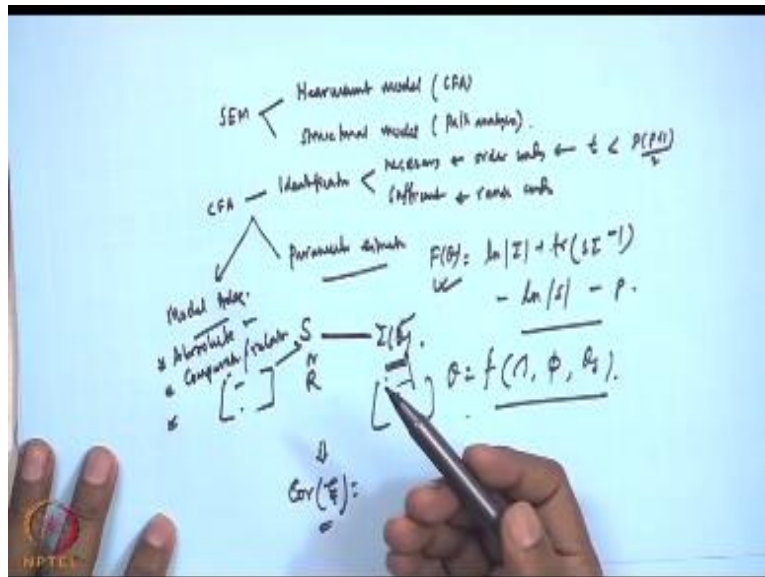 SEM
Measurement model (CFA)
Structural model (Path analysis).
CFA — Identification
necessary ← order condn ← t < P(P+1)/2
sufficient ← rank condn
Parameter estimate
F(θ) = ln|Σ| + tr(SΣ⁻¹)
- ln|S| - P.
Model
* Absolute
* Comparative/relative
*
S — Σ(θ).
R
θ = f(Λ, Φ, θδ).
⇓
Cov(ξ) =
NPTEL